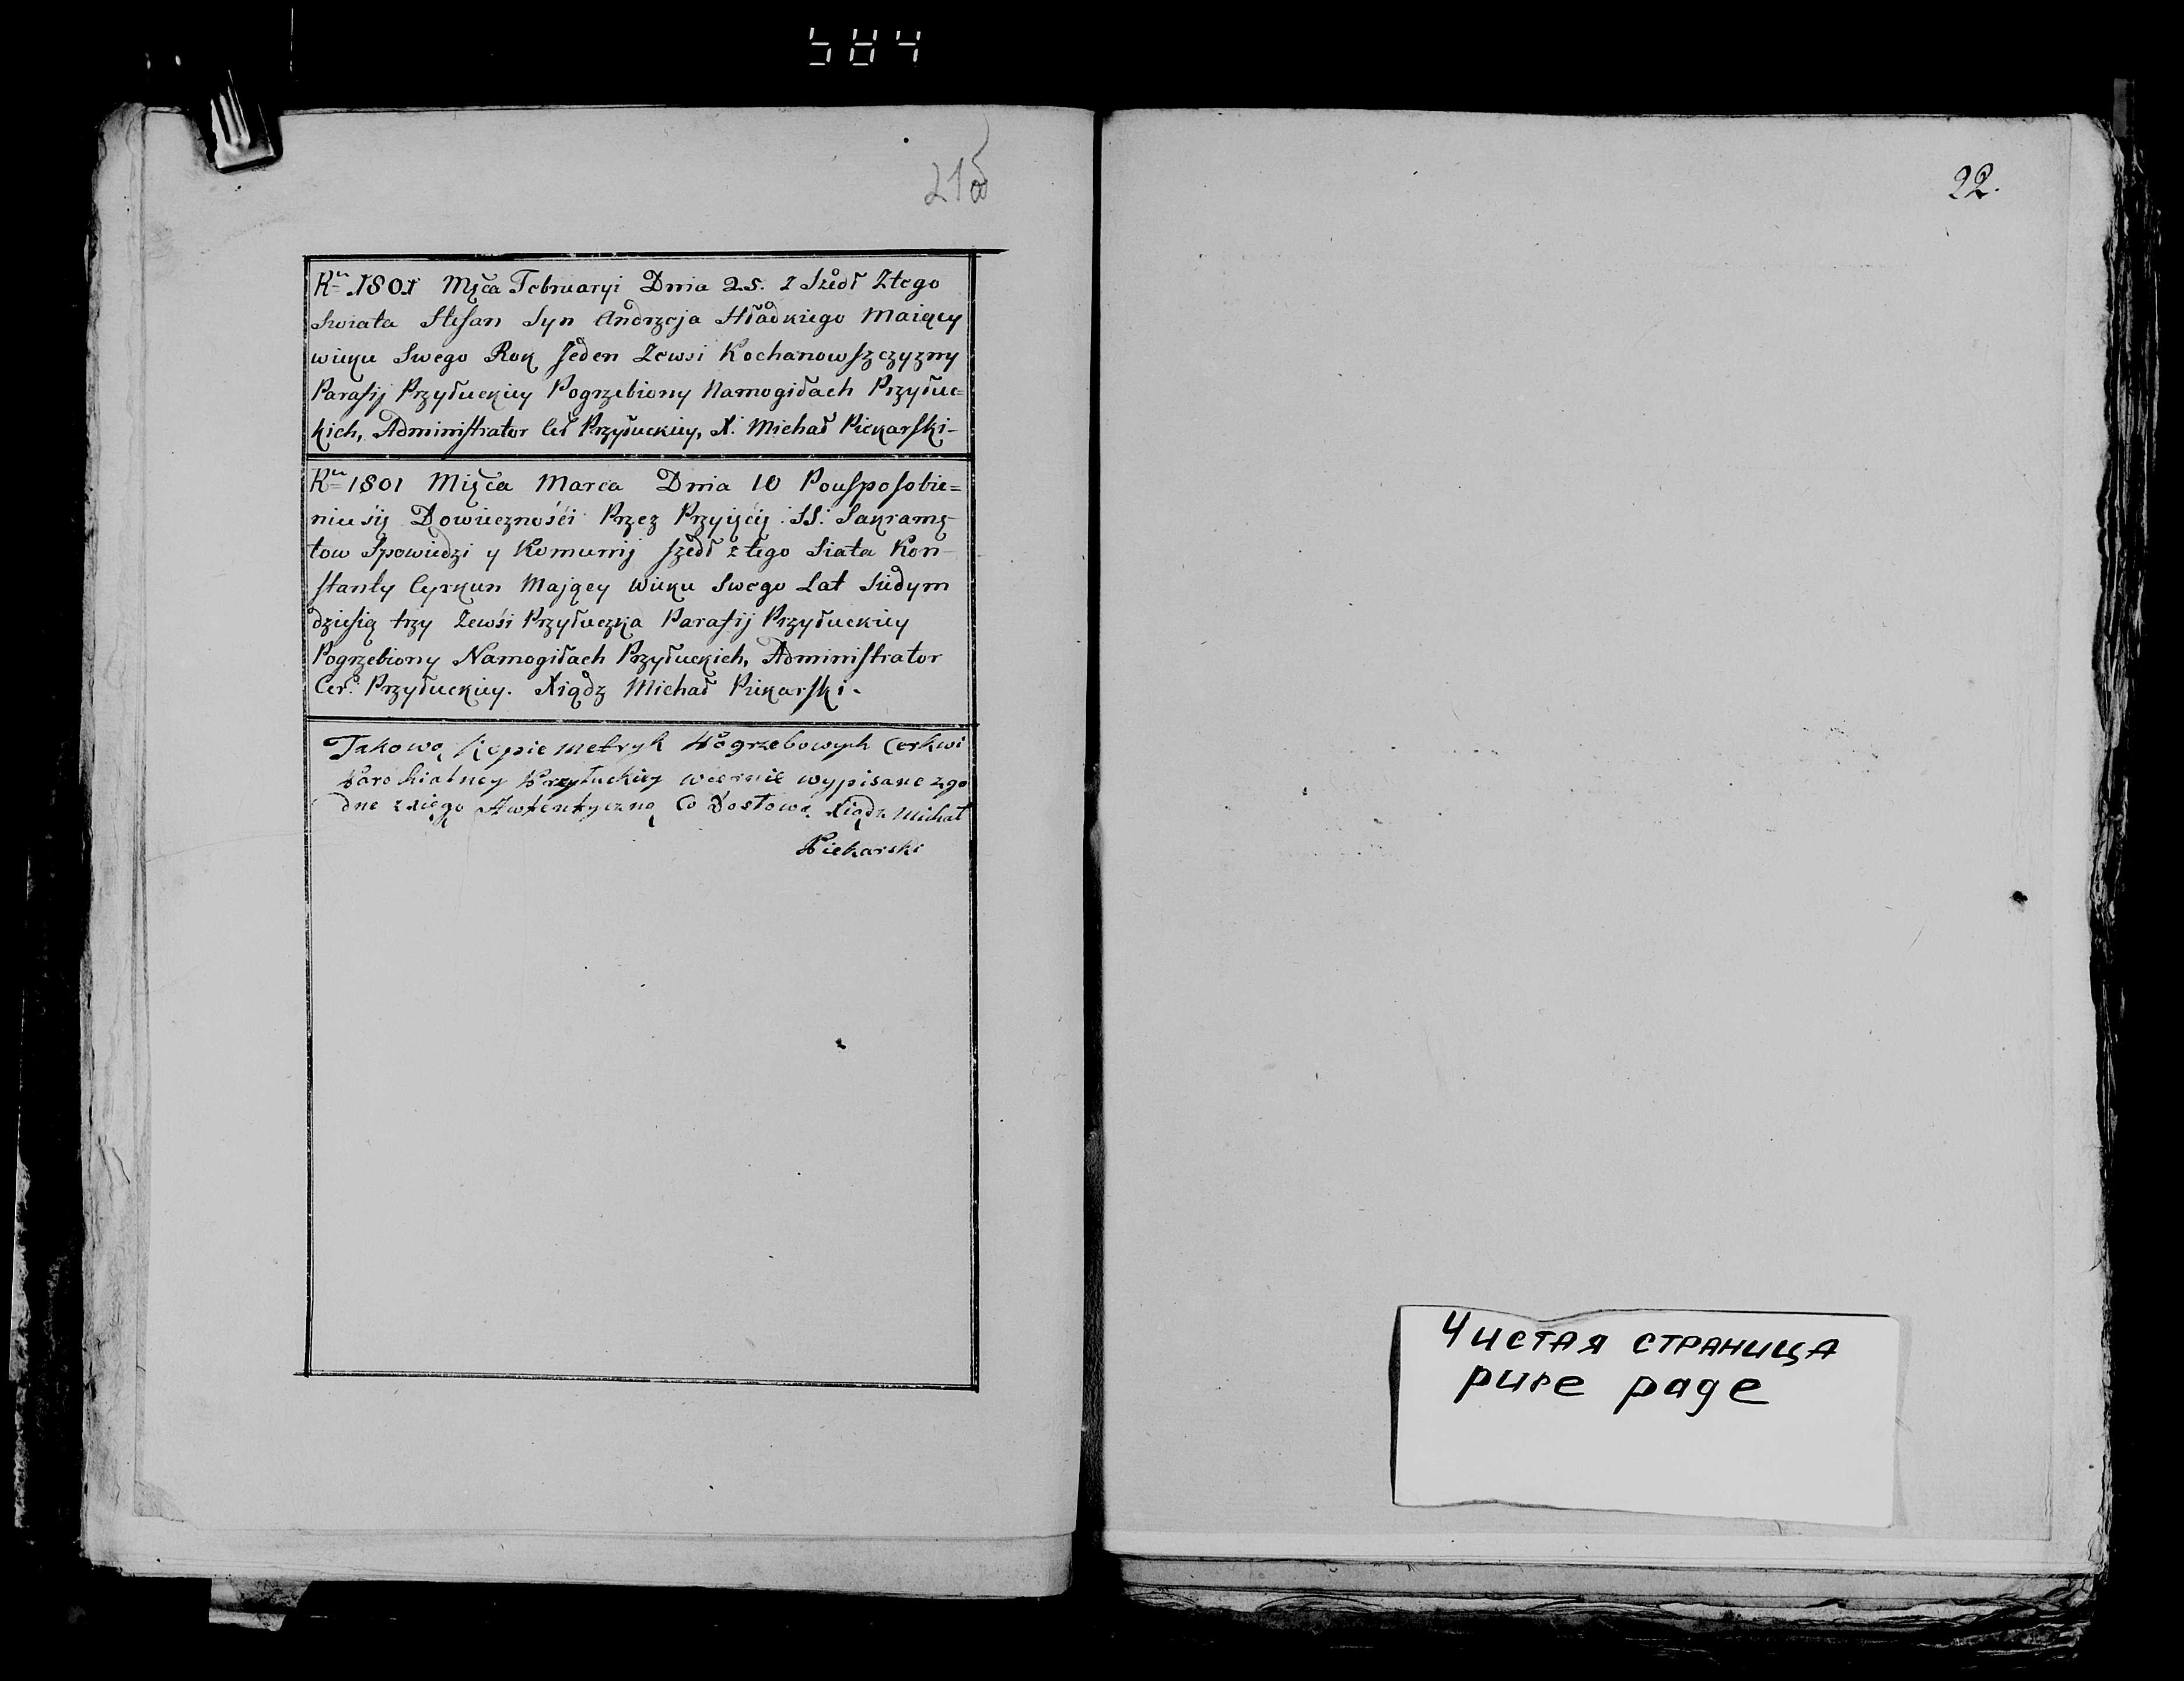 584
215
22.
Ru 1801 Mcа Februaryi Dnia 25. Z Szedł Ztego
Swiata Stefan Syn Andrzeja Hładkiego Maiący
wieku Swego Rok Jeden Zewsi Kochanowszczyzny
Parafij Przyłuckiey Pogrzebiony Namogiłach Przyłuc=
kich, Administrator Cer Przyłuckiey, X. Michał Piekarski-
Ru 1801 Mięca Marca Dnia 10 Pousposobie=
niu się Dowiecznośći Przez Przyięcię SS. Sakramę-
tow Spowiedzi y Komunij szedł z tego Siata Kon-
stanty Cyrkun Mając͏y Wieku Swego Lat Siedym
dziesią trzy Zewśi Przyłuczka Parafij Przyłuckiey
Pogrzebiony Namogiłach Przyłuckich, Administrator
Cer. Przyłuckiey. Xiądz Michał Piekarski-
Takową Kopie metryk Pogrzebowych Cerkwi
Parochialney Przyłuckiey wiernie wypisane zgo
dne z xięgą Awtentyczną Co Xiądz Michał
Piekarski
Чистая страница
pure page